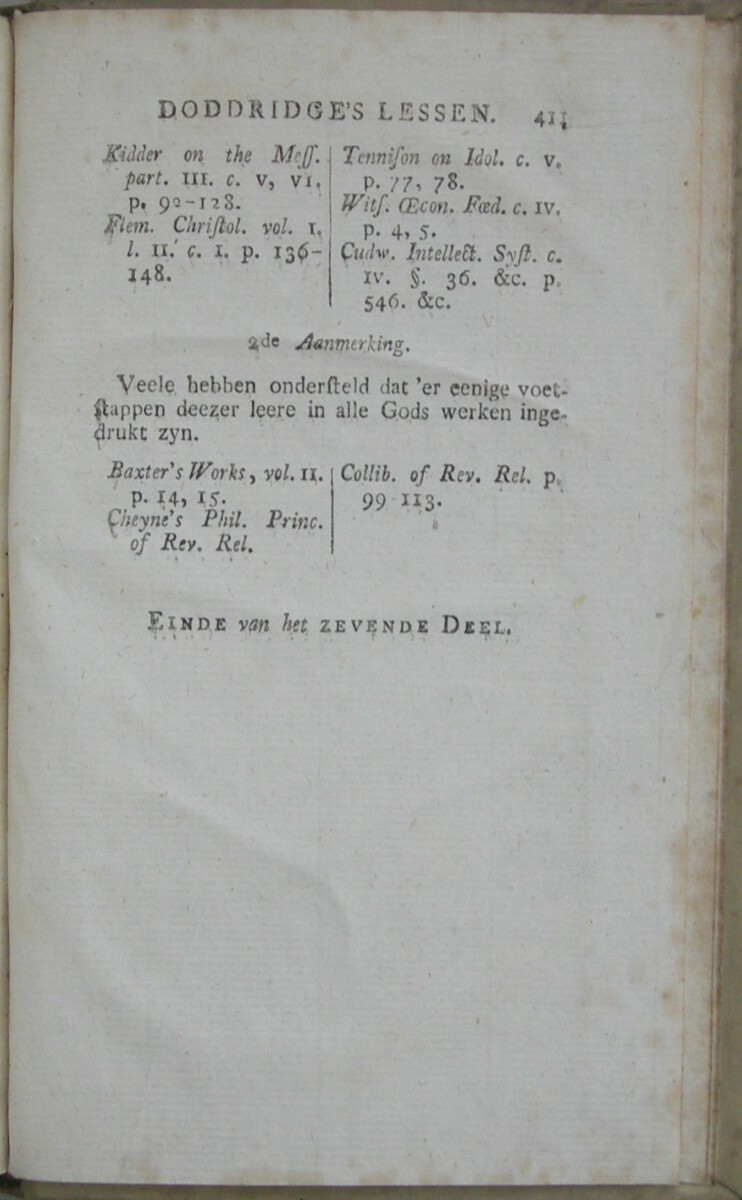 DODDRIDGE'S LESSEN. 411
Kidder on the Meſſ.
part. III. c. V, VI.
p. 90-128.
Flem. Chriſtol. vol. I.
l. II. c. I. p. 136-
148.
Tenniſon on Idol. c. V.
p. 77, 78.
Witſ. Œcon. Fœd. c. IV.
p. 4, 5.
Cudw. Intellect. Syſt. c.
IV. §. 36. &c. p.
546. &c.
2de Aanmerking.
Veele hebben onderſteld dat 'er eenige voet-
ſtappen deezer leere in alle Gods werken inge-
drukt zyn.
Baxter's Works, vol. II.
p. 14, 15.
Cheyne's Phil. Princ.
of Rev. Rel.
Collib. of Rev. Rel. p.
99-113.
EINDE van het ZEVENDE DEEL.